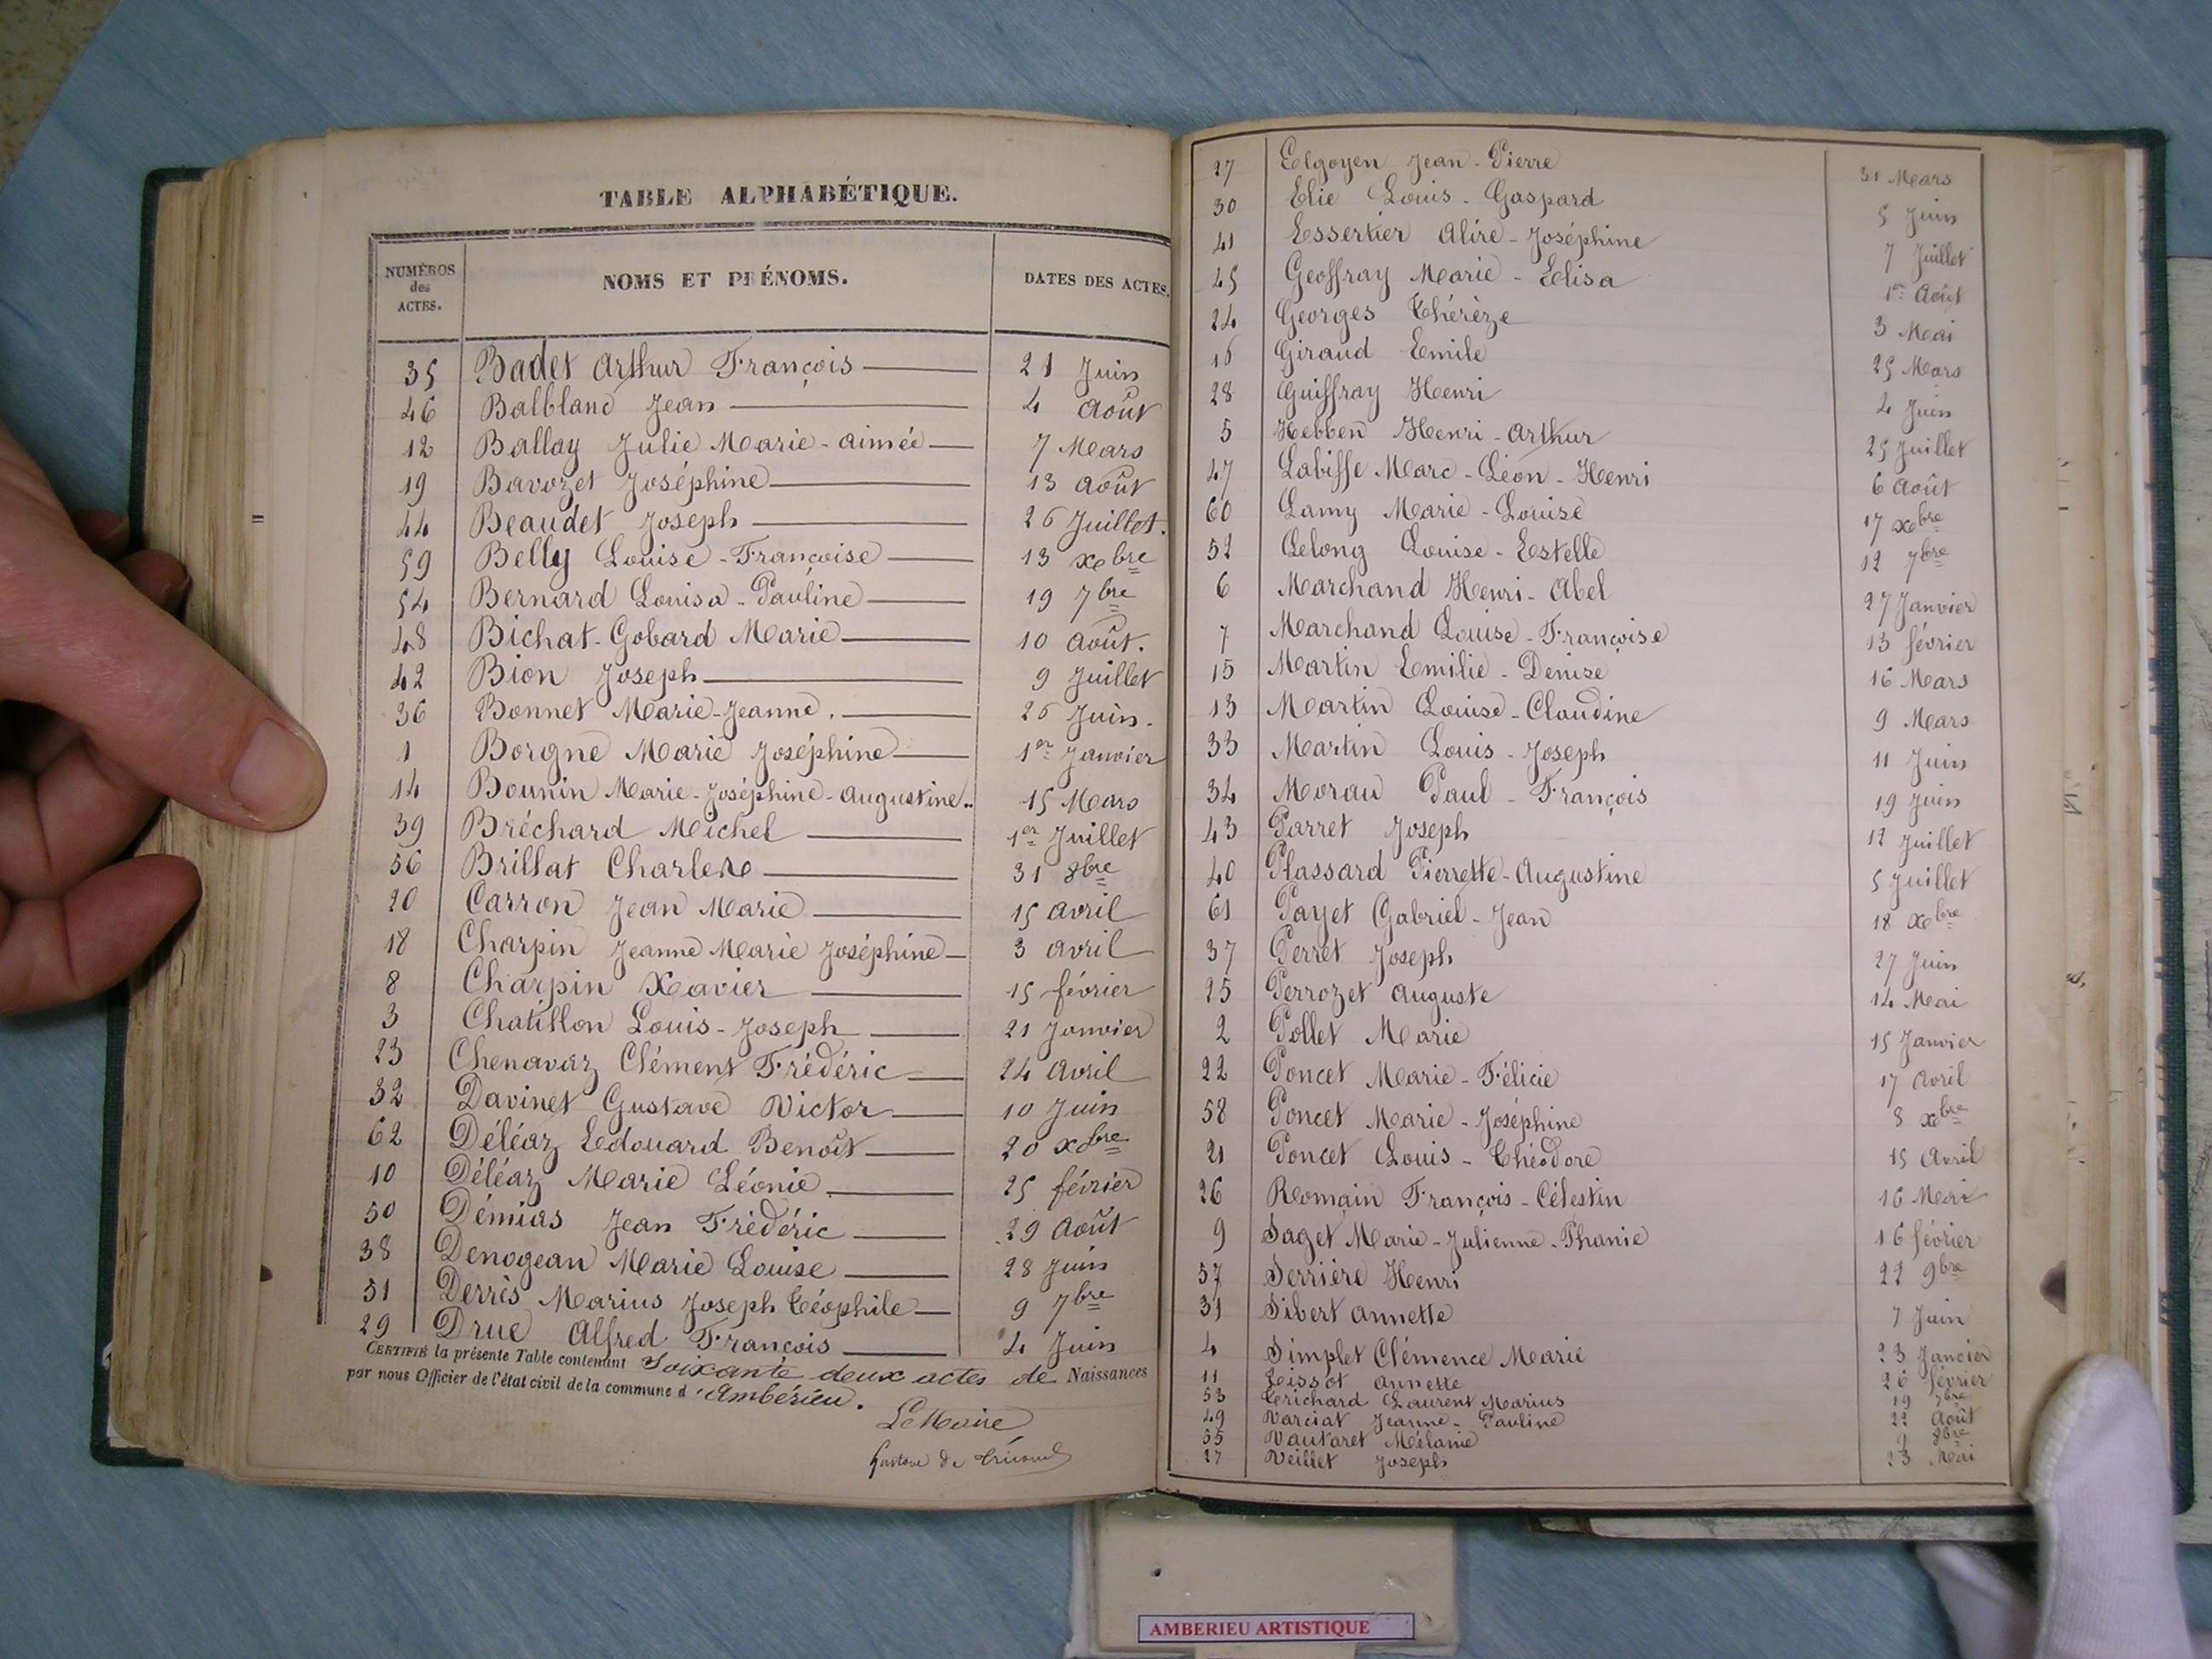 TABLE ALPHABÉTIQUE.
NUMÉROS des ACTES. NOMS ET PRÉNOMS. DATES DES ACTES.
35 Badet Arthur François 21 Juin
46 Balbland Jean 4 Août
12 Ballay Julie Marie-Aimée 7 Mars
19 Bavozet Joséphine 13 Août
44 Beaudet Joseph 26 Juillet.
59 Belly Louise-Françoise 13 Xbre
54 Bernard Louisa-Pauline 19 7bre
48 Bichat-Gobard Marie 10 Août.
42 Bion Joseph 9 Juillet
36 Bonnet Marie-Jeanne. 26 Juin.
1 Borgne Marie Joséphine 1er Janvier
14 Bounin Marie-Joséphine-Augustine 15 Mars
39 Bréchard Michel 1er Juillet
56 Brillat Charles 31 8bre
20 Carron Jean Marie 15 Avril
18 Charpin Jeanne Marie Joséphine 3 Avril
8 Charpin Xavier 15 février
3 Chatillon Louis-Joseph 21 Janvier
23 Chenavaz Clément Frédéric 24 Avril
32 Davinet Gustave Victor 10 Juin
62 Déléaz Edouard Benoît 20 Xbre
10 Déléaz Marie Léonie 25 février
50 Démias Jean Frédéric 29 Août
38 Denogean Marie Louise 28 Juin
51 Derris Marius Joseph Téophile 9 7bre
29 Drue Alfred François 4 Juin
CERTIFIÉ la présente Table contenant Soixante deux actes de Naissances
par nous Officier de l'état civil de la commune d'Ambérieu.
Le Maire
Gustave de
17 Elgoyen Jean-Pierre 31 Mars
30 Elie Louis-Gaspard 5 Juin
41 Essertier Alire-Joséphine 7 Juillet
45 Geoffray Marie-Elisa 1er Août
24 Georges Thérèze 3 Mai
16 Giraud Emile 25 Mars
28 Guiffray Henri 4 Juin
5 Hebben Henri-Arthur 25 Juillet
47 Labisse Marc-Léon-Henri 6 Août
60 Lamy Marie-Louise 17 Xbre
52 Lelong Louise-Estelle 12 7bre
6 Marchand Henri-Abel 27 Janvier
7 Marchand Louise-Françoise 13 février
15 Martin Emilie-Denise 16 Mars
13 Martin Louise-Claudine 9 Mars
33 Martin Louis-Joseph 11 Juin
34 Morau Paul-François 19 Juin
43 Parret Joseph 12 Juillet
40 Plassard Pierrette-Augustine 5 Juillet
61 Payet Gabriel-Jean 18 Xbre
37 Perret Joseph 27 Juin
25 Perrozet Auguste 14 Mai
2 Pollet Marie 15 Janvier
22 Poncet Marie-Félicie 17 Avril
58 Poncet Marie-Joséphine 8 Xbre
21 Poncet Louis-Théodore 15 Avril
26 Romain François-Célestin 16 Mai
9 Saget Marie-Julienne-Phanie 16 février
57 Serrière Henri 22 9bre
31 Sibert Annette 7 Juin
4 Simplet Clémence Marie 23 Janvier
11 Tissot Annette 26 février
53 Trichard Laurent Marius 19 7bre
49 Varciat Jeanne-Pauline 22 Août
55 Vautaret Mélanie 8bre
27 Veillet Joseph 23 Mai
AMBERIEU ARTISTIQUE